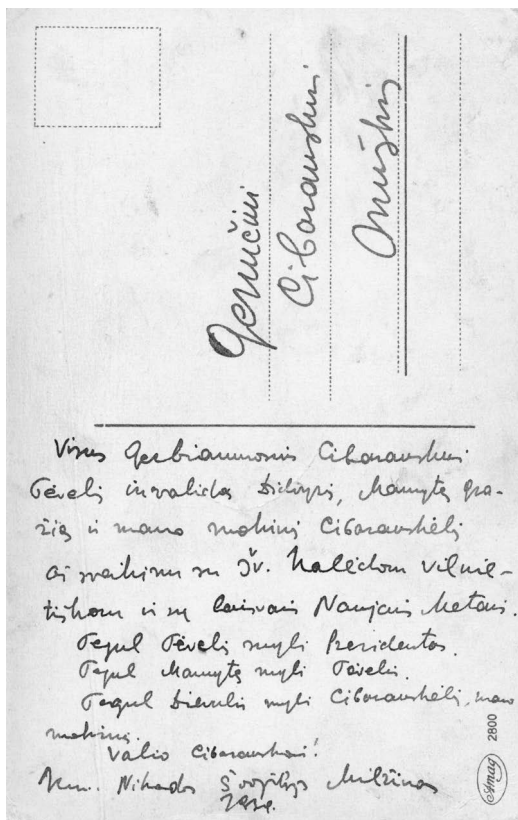 Geručiui
Ciboranskui
Onužkis
Visus Gerbiamuosius Ciboranskus
Tėvelį invalidą Didvyrį, Mamytę gra-
žią ir mano mokinį Ciboranskėlį
aš sveikinu su Šv. Kalėdom Vilnie-
tiškom ir su laisvais Naujais Metais.
Tegul Tėvelį myli Prezidentas.
Tegul Mamytę myli Tėvelis.
Tegul Dievulis myli Ciboranskėlį, mano
mokinį.
Valio Ciboranskai!
Kun. Nikodas Švogžlys Milžinas
1939.
Amag 2800